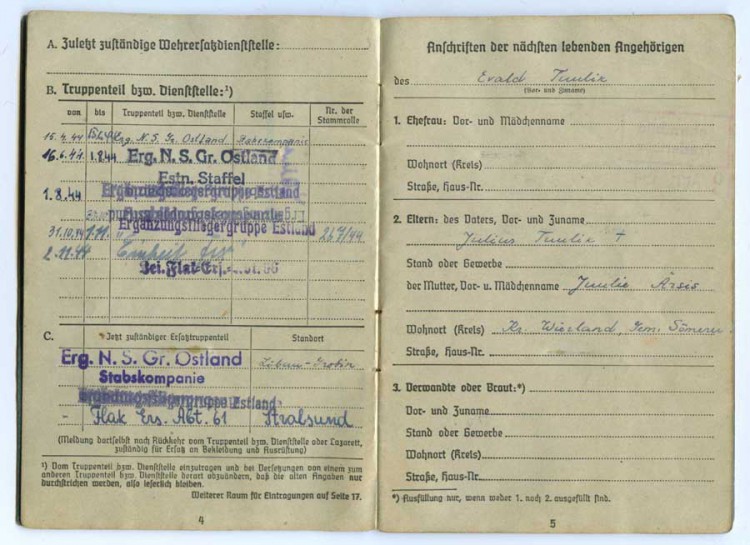 A. Zuletzt zuständige Wehrersatzdienststelle:
B. Truppenteil bzw. Dienststelle:¹)
von bis Truppenteil bzw. Dienststelle Staffel usw. Nr. der Stammrolle
15.4.44 Erg. N. S. Gr. Ostland Stabskompanie
16.6.44 1.8.44 Erg. N. S. Gr. Ostland
Estn. Staffel
1.8.44 Ergänzungsfliegergruppe Estland
Ausbildungskompanie
31.10.44 Ergänzungsfliegergruppe Estland 267/44
2.11.44 "Einheit
C. Jetzt zuständiger Ersatztruppenteil Standort
Erg. N. S. Gr. Ostland Libau-Grobin
Stabskompanie
Ergänzungsfliegergruppe Estland
- Flak Ers. Abt. 61 Stralsund
(Meldung dortselbst nach Rückkehr vom Truppenteil bzw. Dienststelle oder Lazarett,
zuständig für Ersatz an Bekleidung und Ausrüstung)
¹) Vom Truppenteil bzw. Dienststelle einzutragen und bei Versetzungen von einem zum
anderen Truppenteil bzw. Dienststelle derart abzuändern, daß die alten Angaben nur
durchstrichen werden, also leserlich bleiben.
Weiterer Raum für Eintragungen auf Seite 17.
4
Anschriften der nächsten lebenden Angehörigen
des Evald
(Vor- und Zuname)
1. Ehefrau: Vor- und Mädchenname
Wohnort (Kreis)
Straße, Haus-Nr.
2. Eltern: des Vaters, Vor- und Zuname
Julius +
Stand oder Gewerbe
der Mutter, Vor- u. Mädchenname
Wohnort (Kreis) Kr. Wierland, Gem.
Straße, Haus-Nr.
3. Verwandte oder Braut:*)
Vor- und Zuname
Stand oder Gewerbe
Wohnort (Kreis)
Straße, Haus-Nr.
*) Ausfüllung nur, wenn weder 1. noch 2. ausgefüllt sind.
5